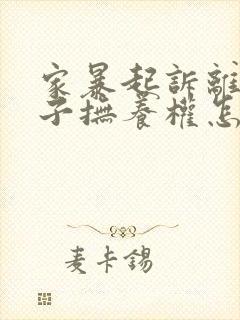 家暴起訴離
子撫養權怎
麦卡錫